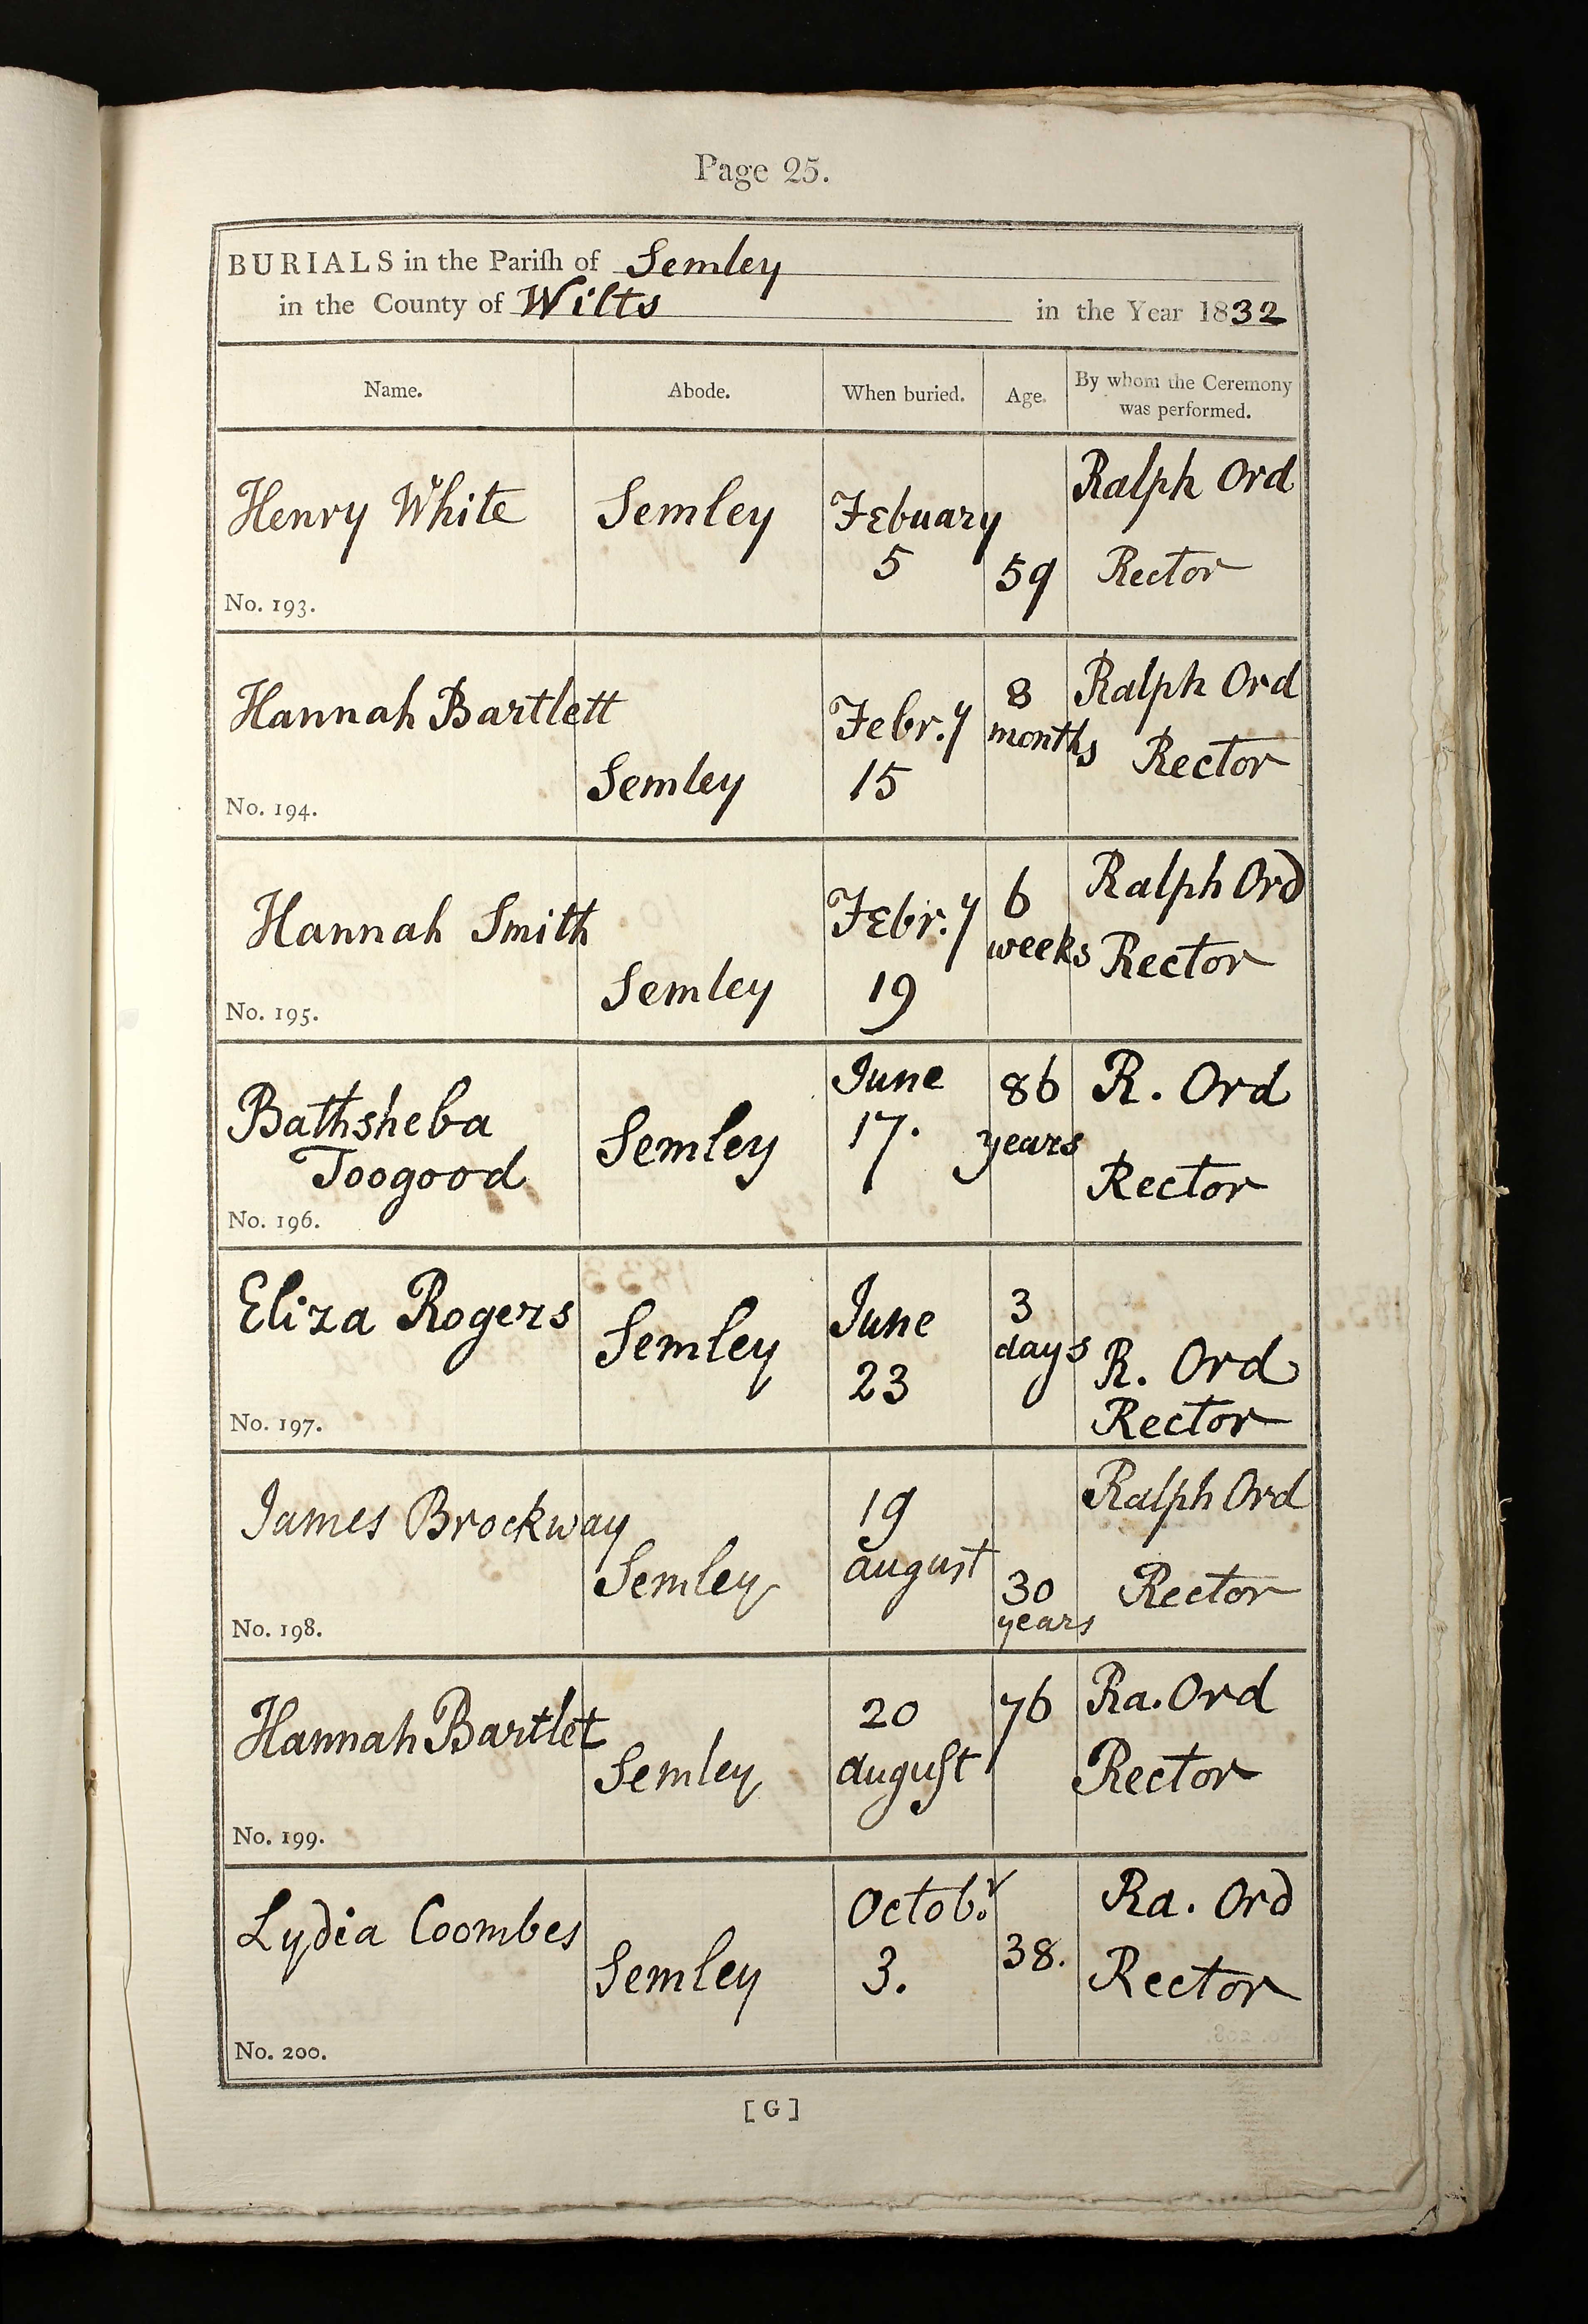 Page 25.
BURIALS in the Pariſh of Semley
in the County of Wilts in the Year 1832
Name. Abode. When buried. Age. By whom the Ceremony was performed.
Henry White Semley Febuary 5 59 Ralph Ord Rector
No. 193.
Hannah Bartlett Semley Febr.y 15 8 months Ralph Ord Rector
No. 194.
Hannah Smith Semley Febr.y 19 6 weeks Ralph Ord Rector
No. 195.
Bathsheba Toogood Semley June 17. 86 years R. Ord Rector
No. 196.
Eliza Rogers Semley June 23 3 days R. Ord Rector
No. 197.
James Brockway Semley 19 august 30 years Ralph Ord Rector
No. 198.
Hannah Bartlet Semley 20 auguſt 76 Ra. Ord Rector
No. 199.
Lydia Coombes Semley Octob.r 3. 38. Ra. Ord Rector
No. 200.
[G]